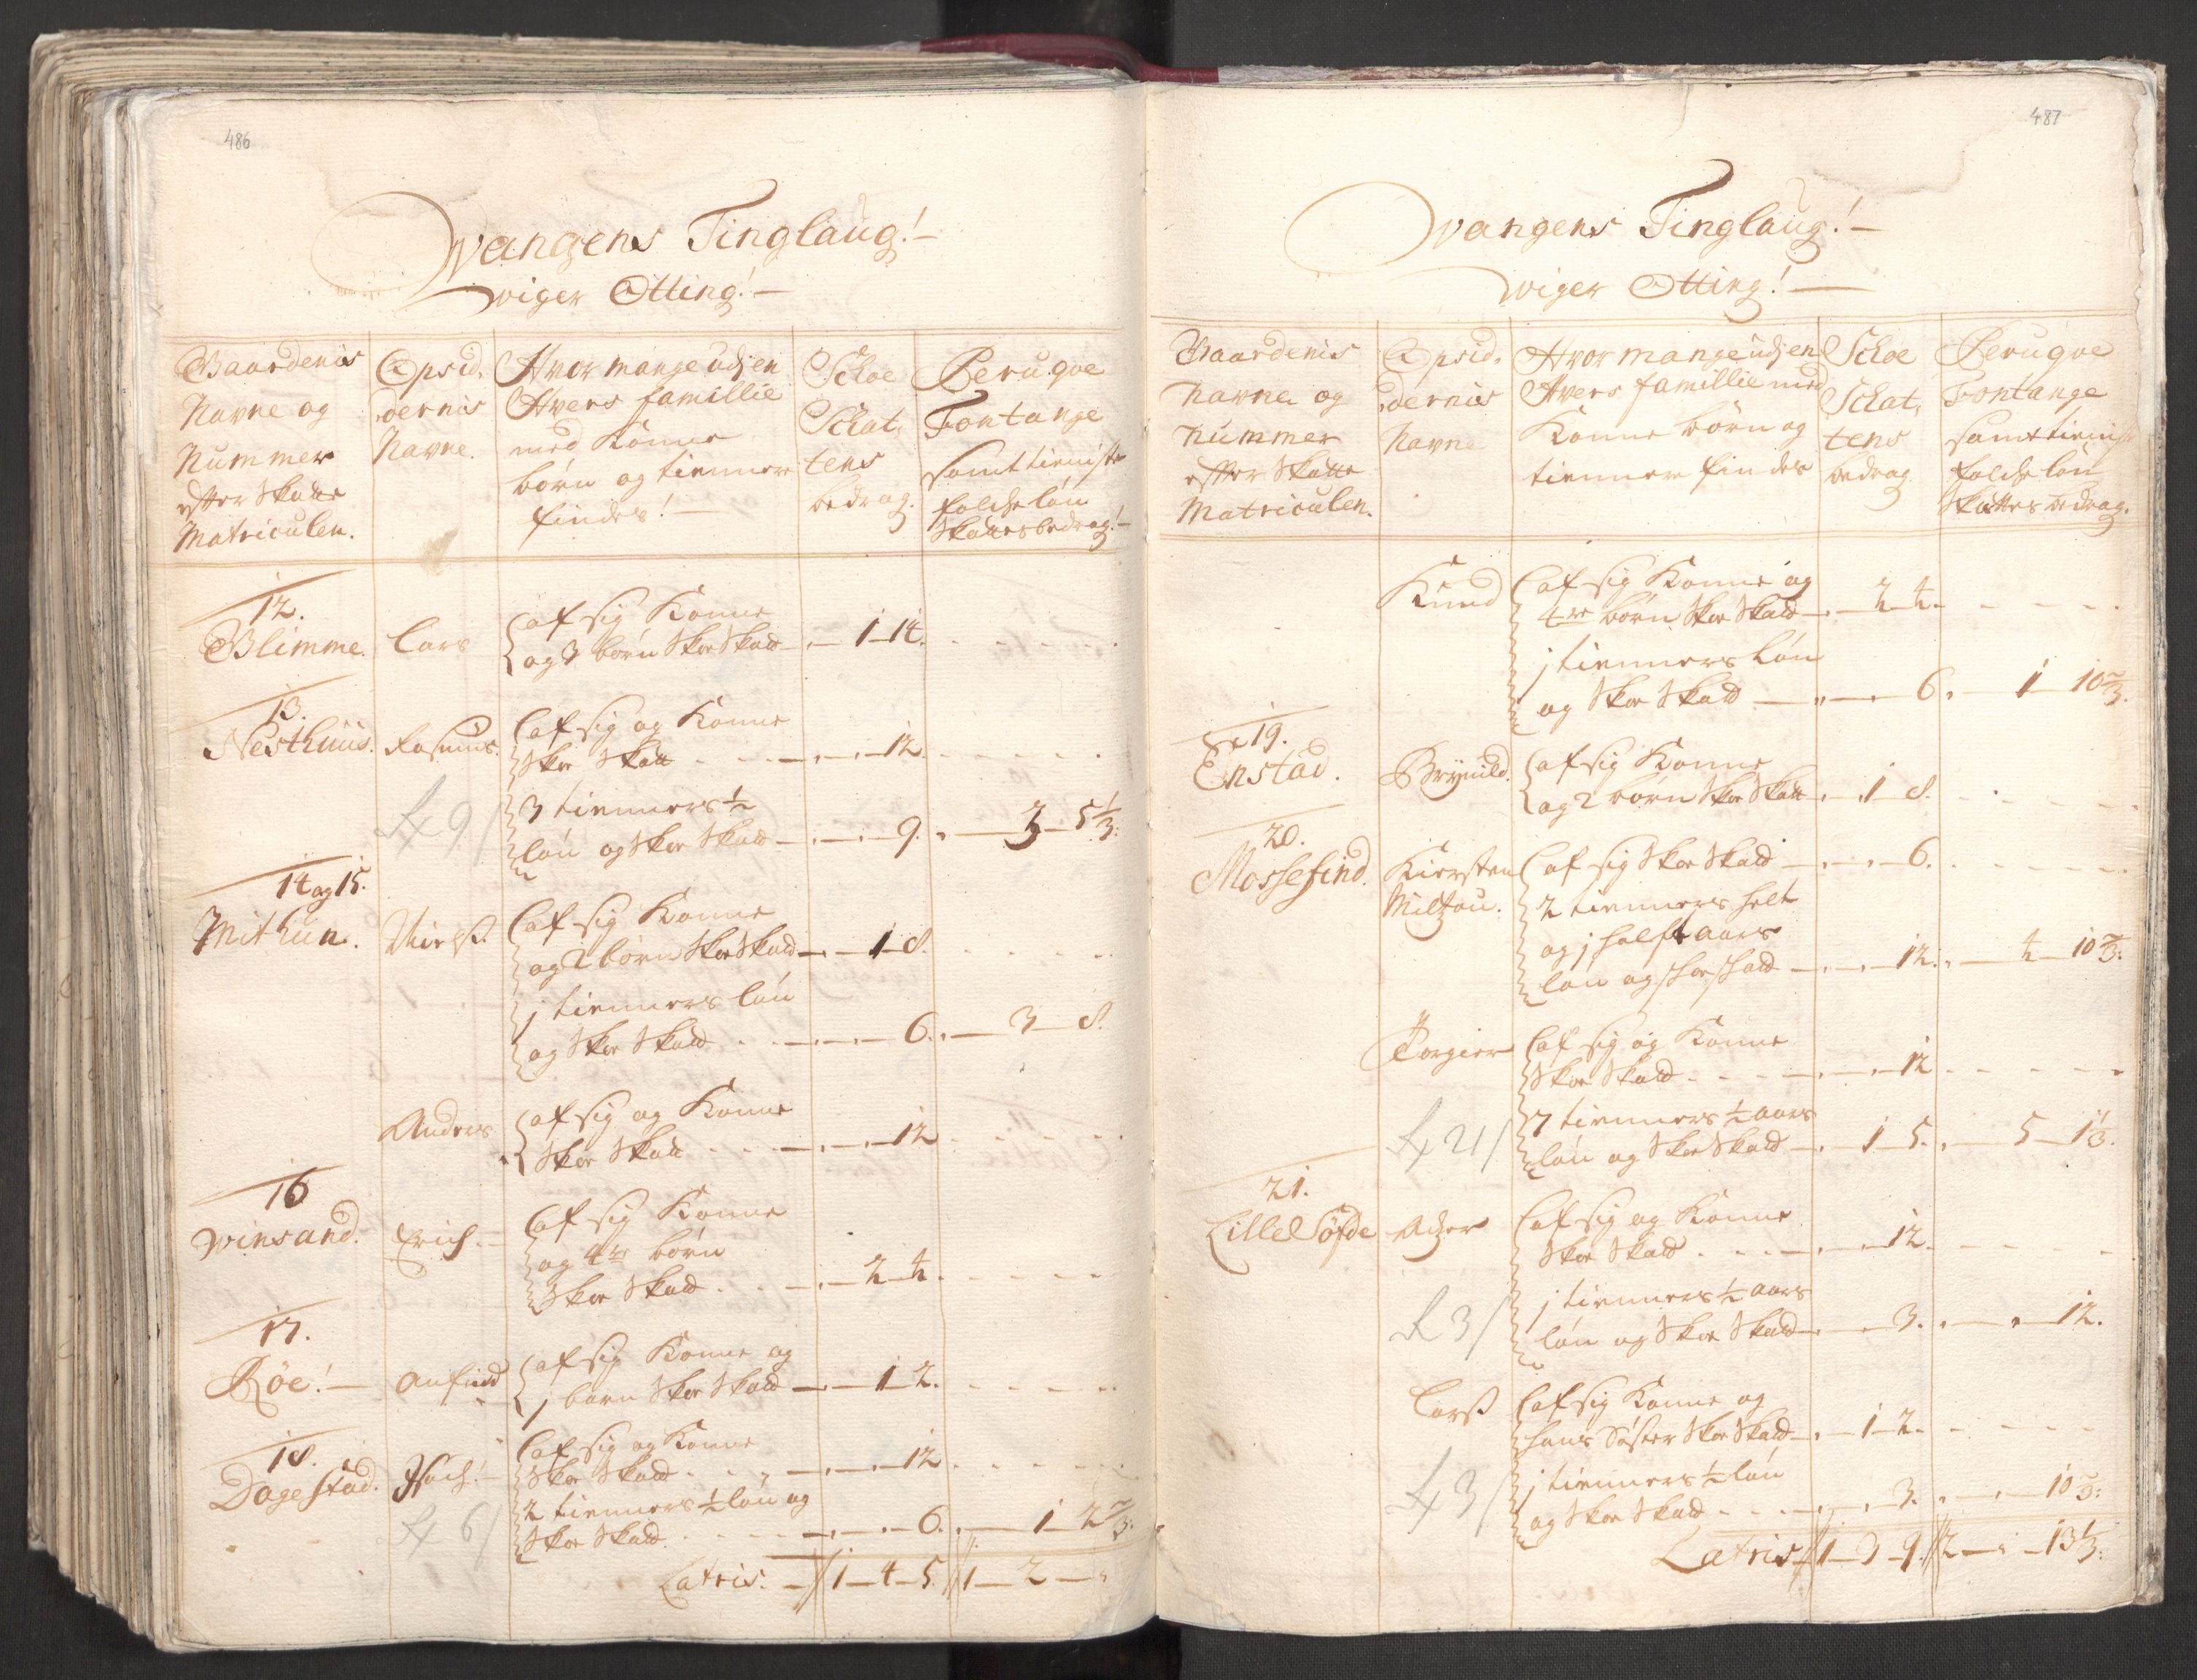 486
Wangens Tinglaug!
wiger Otting!
Gaardenis
Navne og
Nummer
efter Skatte
Matriculen.
Opsid-
dernis
Navne.
Hvor mange udj en
Hvers famillie
med Konne
børn og tienner
findes!
Schoe
Schat-
tens
bedrag.
Peruqve
Fontange
samt tieniste
folche løn
Skattes bedrag!
12.
Glimme. Lars af sig Konne
og 3 børn Skoe Skatt 1 14.
13.
Nesthuus. Rasmus. af sig og Konne
Skoe Skatt 12.
3 tienners ½
løn og Skoe Skatt 9. 3 5⅓.
14 og 15.
Mithun. af sig Konne
og 2 børn Skoe Skatt 1 8.
j tienners løn
og Skoe Skatt 6. 3 8.
Anders af sig og Konne
Skoe Skatt 12
16
Winsand. Erich af sig Konne
og 4re børn
Skoe Skatt 2 4.
17.
Røe! Anfind af sig Konne og
j barn Skoe Skatt 1 2.
18.
Dagestad. Isach! af sig og Konne
Skoe Skatt 12
2 tienners ½ løn og
Skoe Skatt 6. 1 2⅔.
Latris. 1 4 5 1 2
487
Wangens Tinglaug!
wiger Otting!
Gaardenis
Navne og
Nummer
efter Skatte
Matriculen.
Opsid-
dernis
Navne
Hvor mange udj en
Hvers famillie med
Konne børn og
tienner findes
Schoe
Schat-
tens
bedrag
Peruqve
Fontange
samt tieniste
folche løn
Skattes bedrag.
Knud af sig Konne og
4re børn Skoe Skatt 2 4.
j tienners løn
og Skoe Skatt 6. 1 10⅔.
19.
Enstad. Brynild. af sig Konne
og 2 børn Skoe Skatt 1 8.
20.
Mossefind. Kiersten
Miltzou. af sig Skoe Skatt 6.
2 tienners helt
og j halft aars
løn og Skoe Skatt 12. 4 10⅔.
Torgier af sig og Konne
Skoe Skatt 12
7 tienners ½ aars
løn og Skoe Skatt 1 5. 5 1⅓.
21.
Lille Løfde Adzer af sig og Konne
Skoe Skatt 12.
j tienners ½ aars
løn og Skoe Skatt 3. 12.
Larss af sig Konne og
hans Søster Skoe Skatt 1 2.
j tienners ½ løn
og Skoe Skatt 3. 10⅔.
Latris 1 3 9. 2 13⅓.